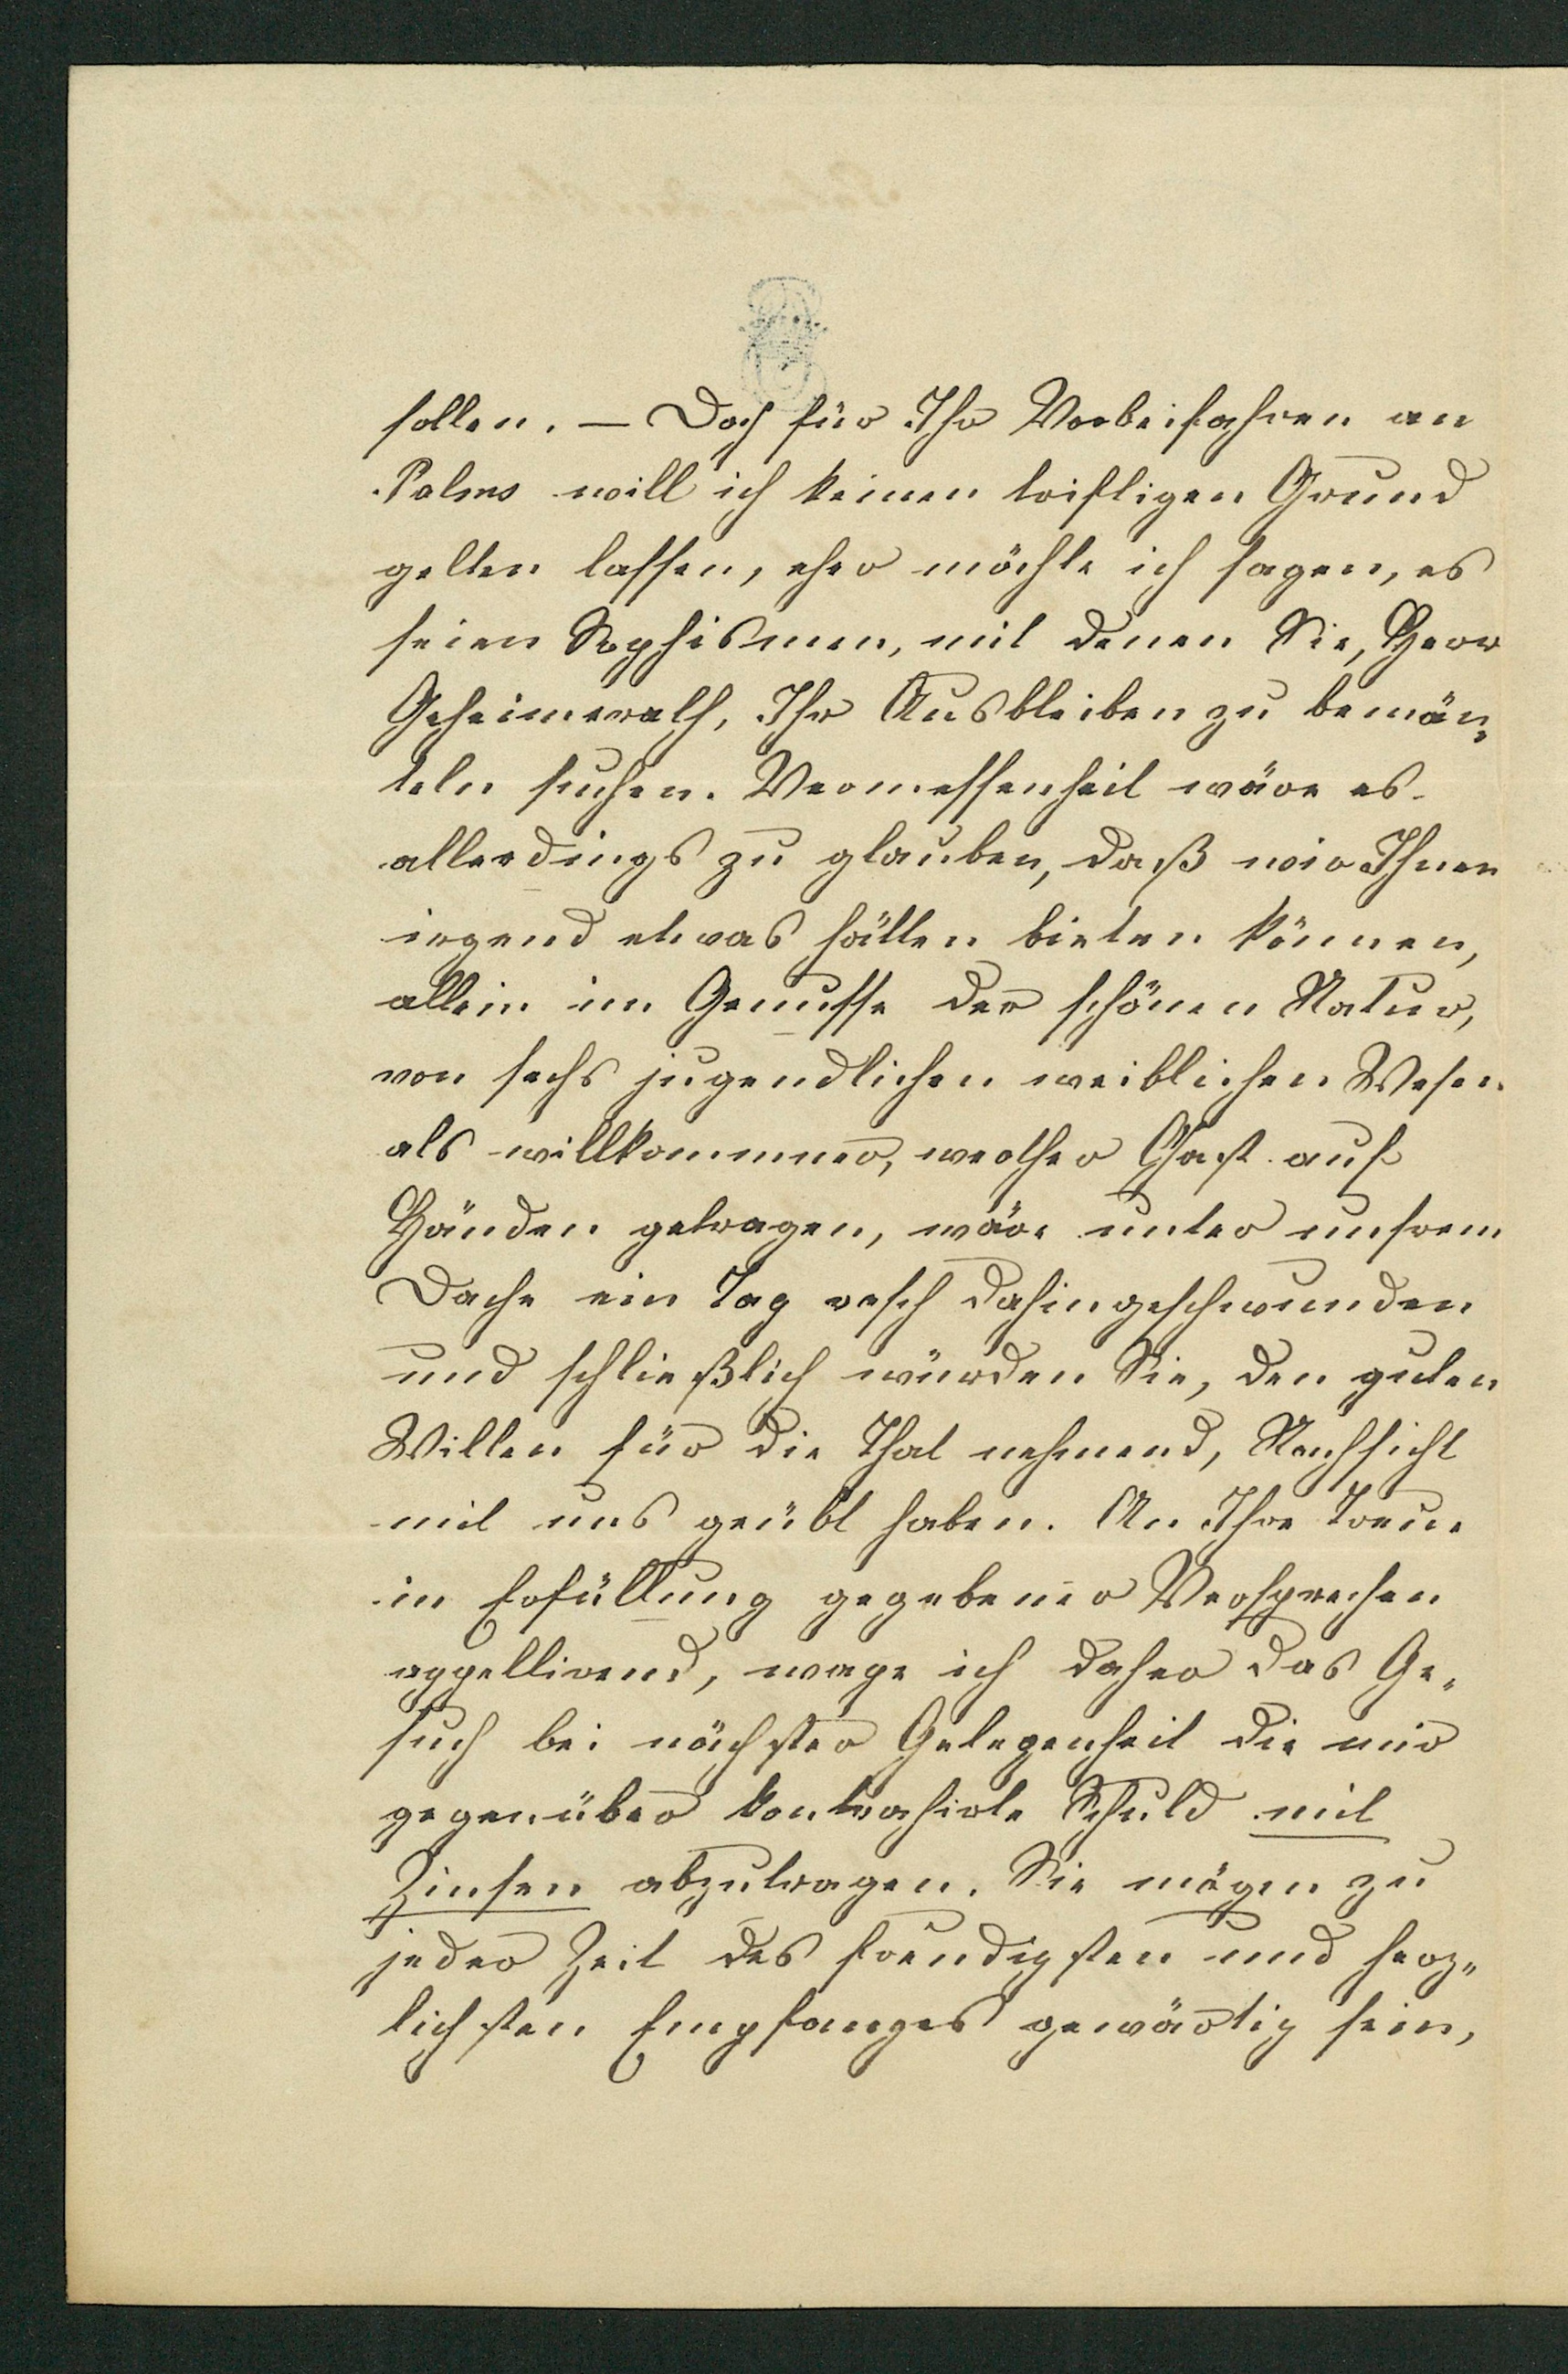 sollen. — Doch für Ihr Vorbeifahren an
Palms will ich keinen triftigen Grund
gelten lassen, eher möchte ich sagen, es
seien Sophismen, mit denen Sie, Herr
Geheimerath, Ihr Ausbleiben zu bemän„
teln suchen. Vermessenheit wäre es
allerdings zu glauben, daß wir Ihnen
irgend etwas hätten bieten können,
allein im Genusse der schönen Natur,
von sechs jugendlichen weiblichen Wesen
als willkommner, werther Gast auf
Händen getragen, wäre unter unsrem
Dache ein Tag rasch dahingeschwunden
und schließlich würden Sie, den guten
Willen für die That nehmend, Nachsicht
mit uns geübt haben. An Ihre Treue
in Erfüllung gegebener Versprechen
appellirend, wage ich daher das Ge„
such bei nächster Gelegenheit die mir
gegenüber kontrahirte Schuld mit
Zinsen abzutragen. Sie mögen zu
jeder Zeit des freudigsten und herz„
lichsten Empfanges gewärtig sein,